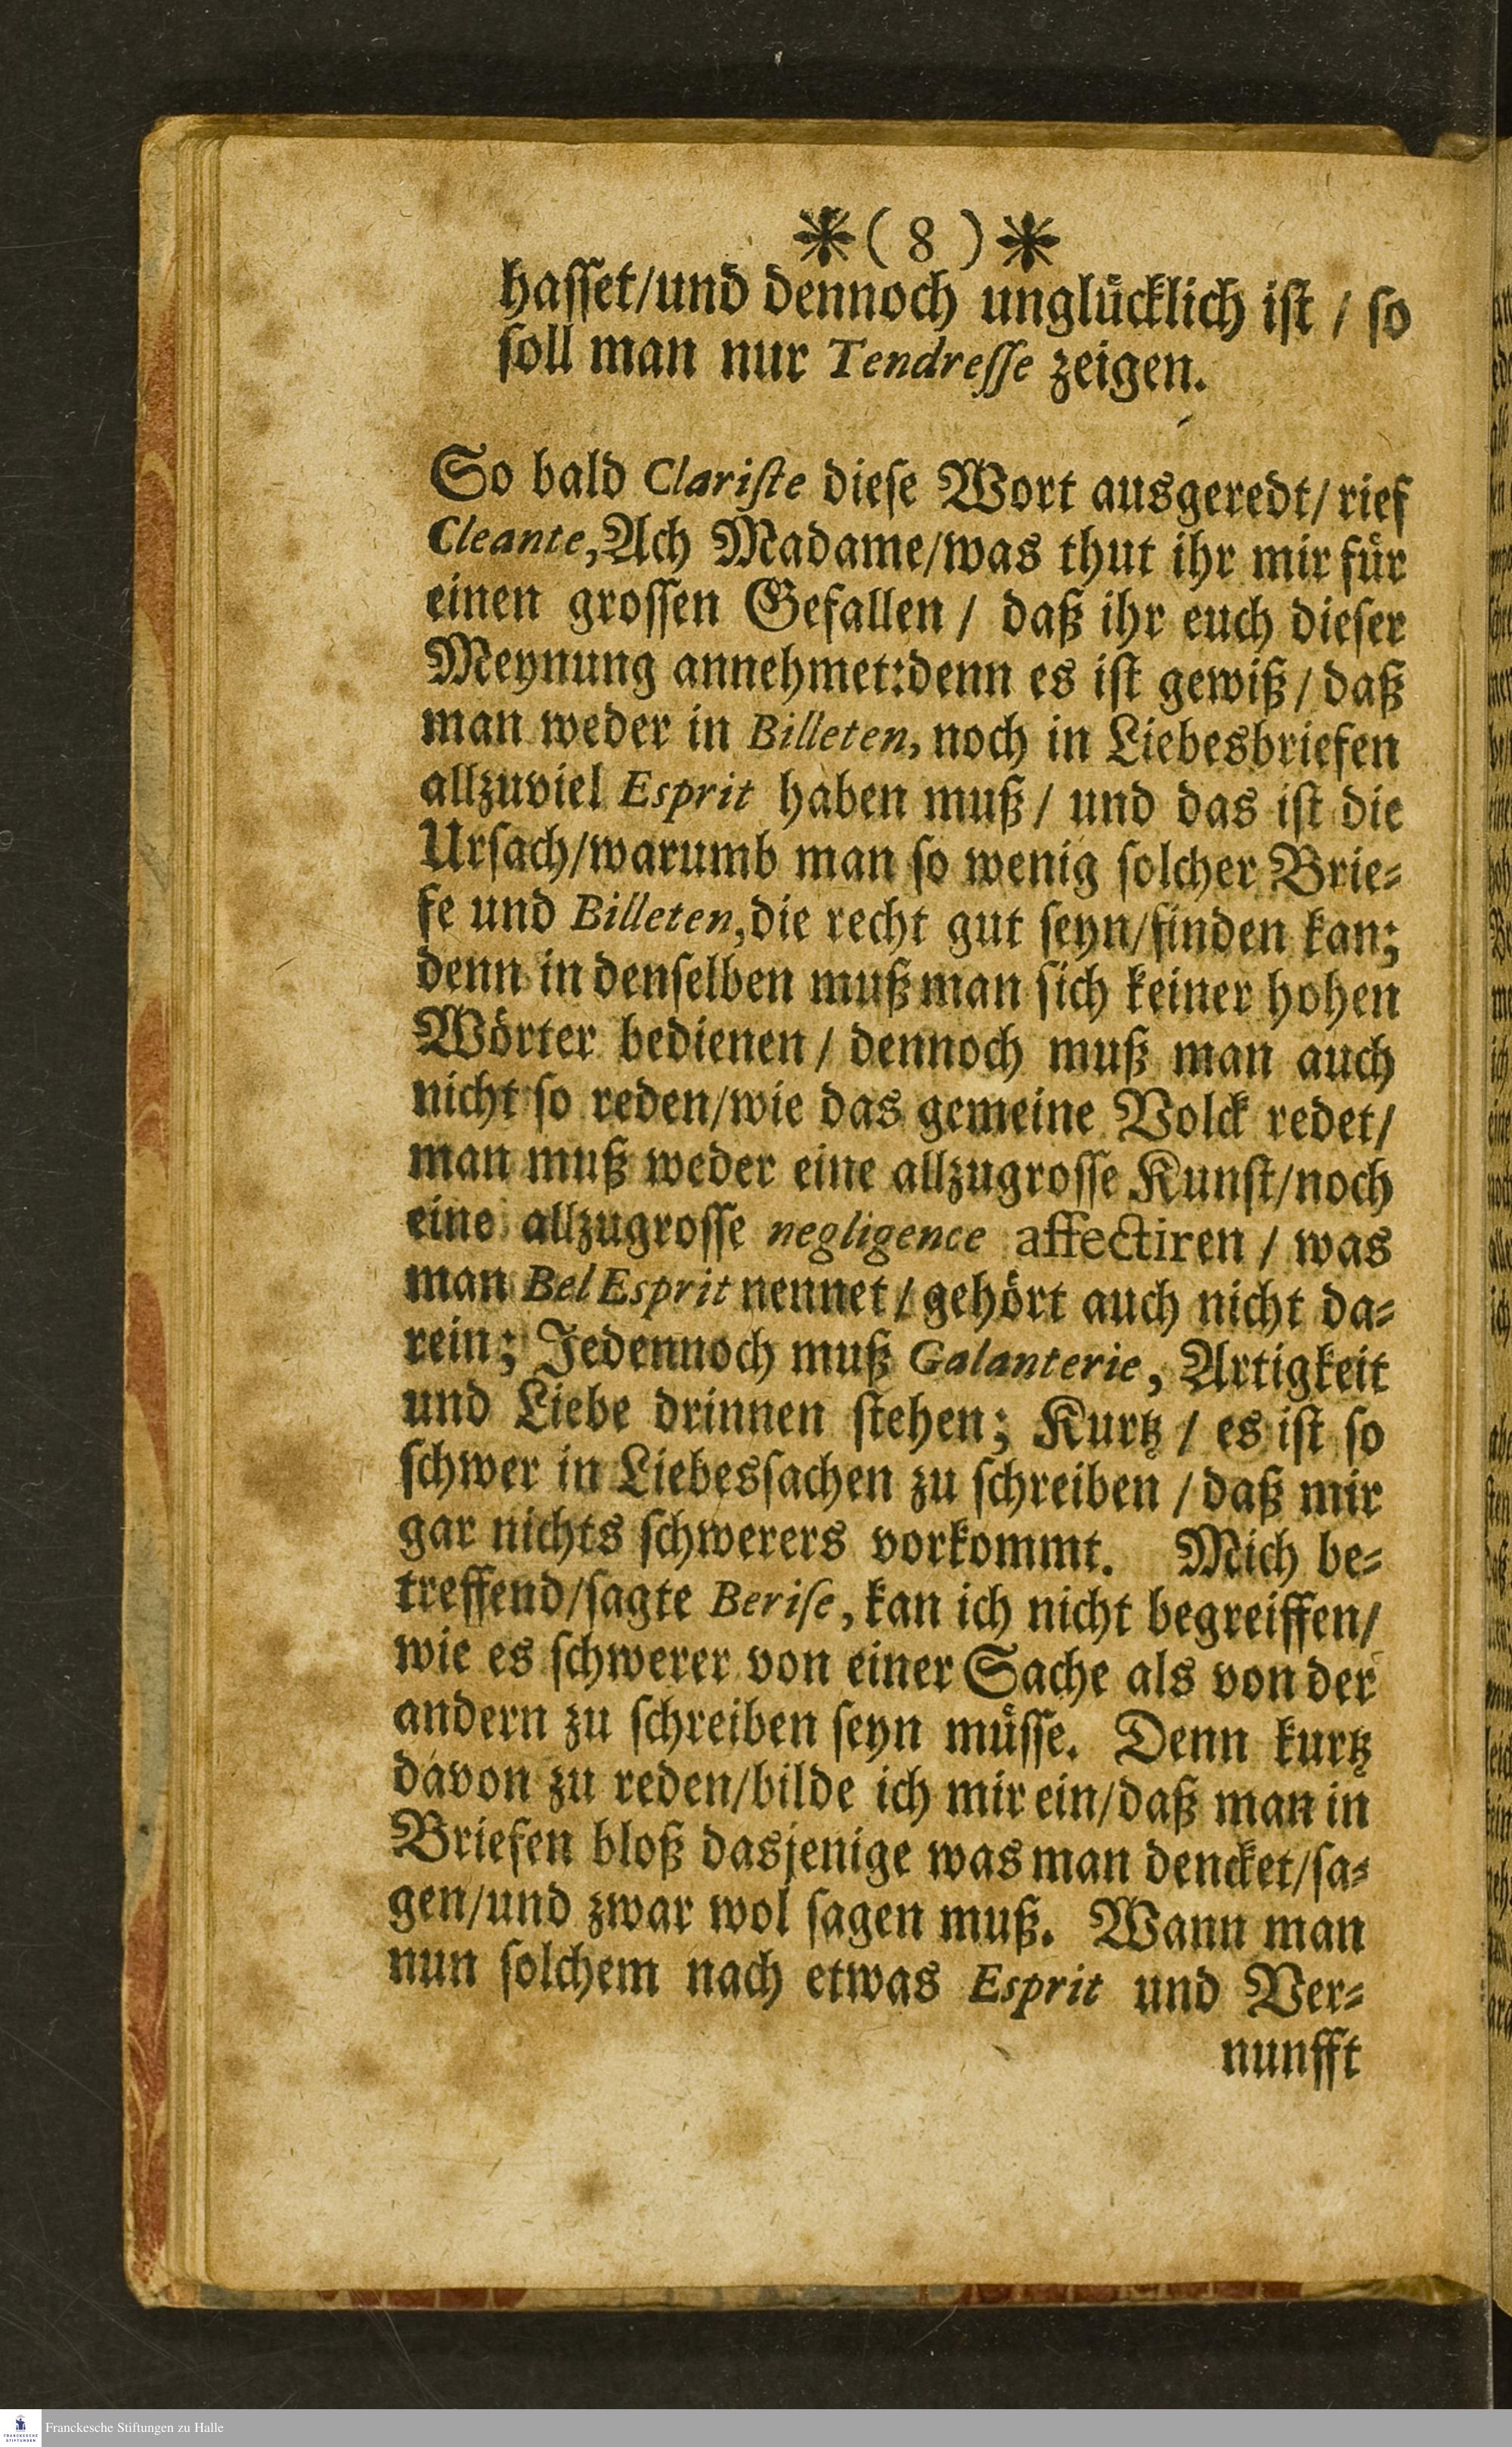 *( 8 )*
hasset/und dennoch unglücklich ist / so
soll man nur Tendresse zeigen.
So bald Clariste diese Wort ausgeredt/ rief
Cleante, Ach Madame/was thut ihr mir für
einen grossen Gefallen / daß ihr euch dieser
Meynung annehmet:denn es ist gewiß / daß
man weder in Billeten, noch in Liebesbriefen
allzuviel Esprit haben muß / und das ist die
Ursach/warumb man so wenig solcher Brie-
fe und Billeten, die recht gut seyn/finden kan;
denn in denselben muß man sich keiner hohen
Wörter bedienen / dennoch muß man auch
nicht so reden/wie das gemeine Volck redet/
man muß weder eine allzugrosse Kunst/noch
eine allzugrosse negligence affectiren / was
man Bel Esprit nennet / gehört auch nicht da-
rein; Jedennoch muß Galanterie, Artigkeit
und Liebe drinnen stehen; Kurtz / es ist so
schwer in Liebessachen zu schreiben / daß mir
gar nichts schwerers vorkommt. Mich be-
treffend/sagte Berise, kan ich nicht begreiffen/
wie es schwerer von einer Sache als von der
andern zu schreiben seyn müsse. Denn kurtz
davon zu reden/bilde ich mir ein/daß man in
Briefen bloß dasjenige was man dencket/sa-
gen/und zwar wol sagen muß. Wann man
nun solchem nach etwas Esprit und Ver-
nunfft
Franckesche Stiftungen zu Halle